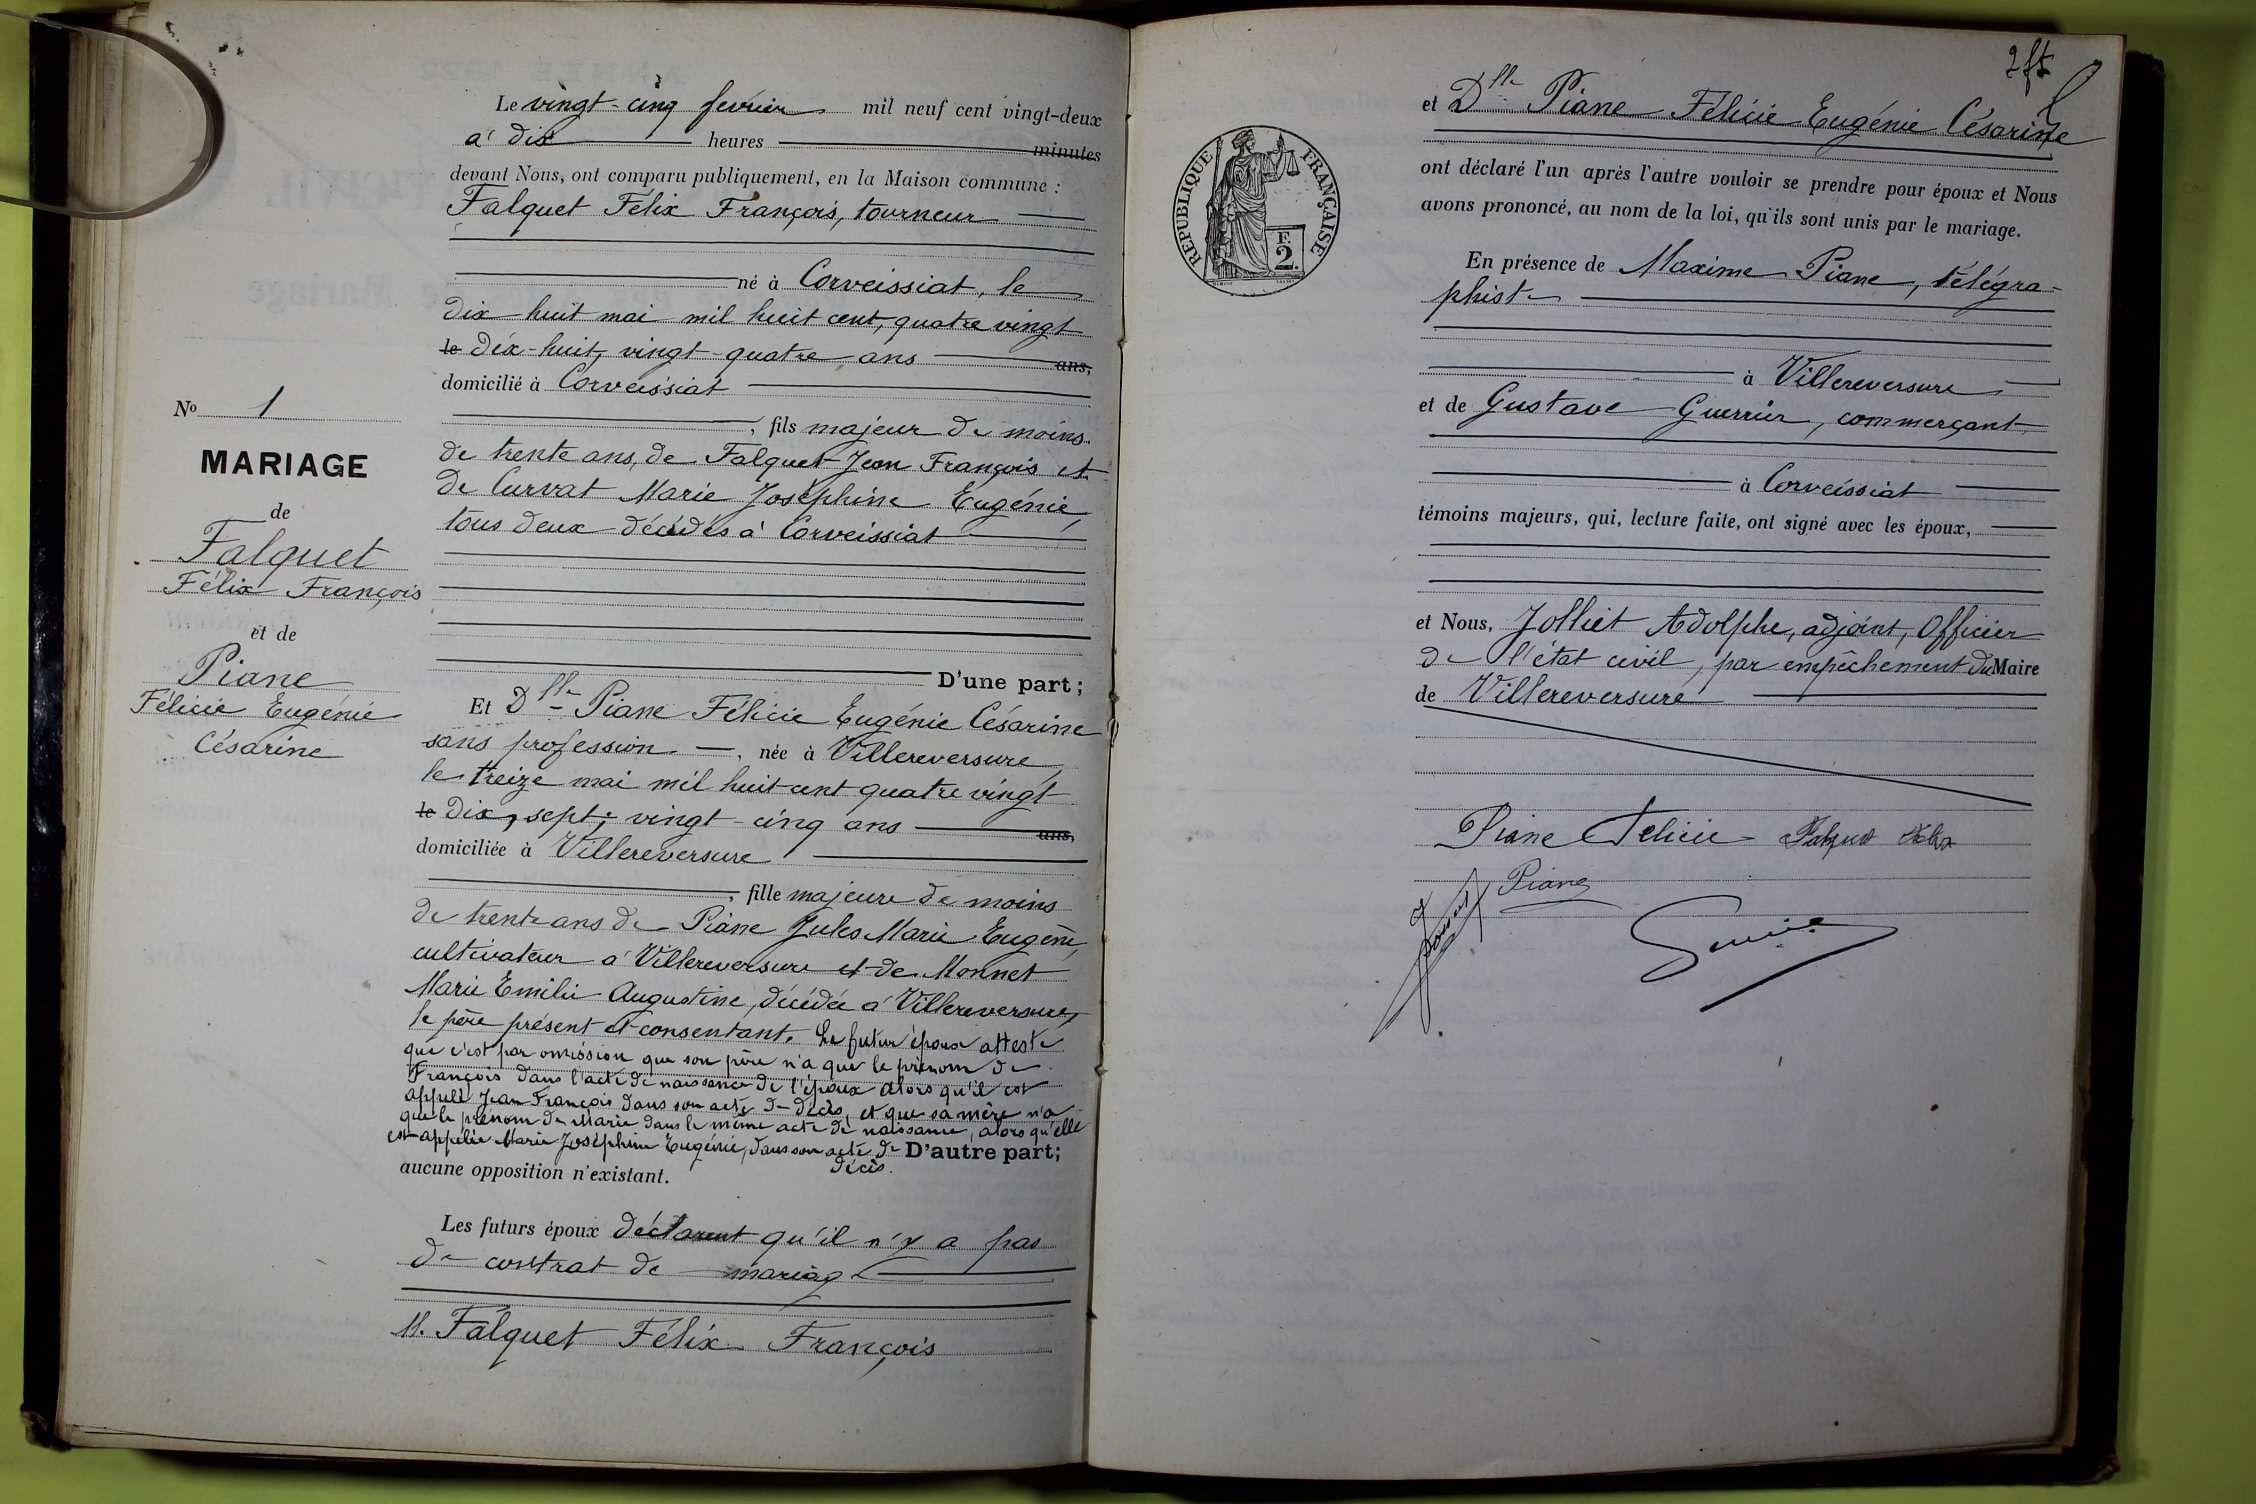 Le vingt-cinq février mil neuf cent vingt-deux
à dix heures minutes
devant Nous, ont comparu publiquement, en la Maison commune :
Falquet Félix François, tourneur
né à Corveissiat, le
dix huit mai mil huit cent, quatre vingt
le dix-huit, vingt-quatre ans ans,
domicilié à Corveissiat
, fils majeur de moins
de trente ans, de Falquet Jean François et
de Curvat Marie Joséphine Eugénie,
tous deux décédés à Corveissiat
D'une part;
No 1
MARIAGE
de
Falquet
Félix François
et de
Piane
Félicie Eugénie
Césarine
Et Dlle Piane Félicie Eugénie Césarine
sans profession, née à Villereversure,
le treize mai mil huit cent quatre vingt
le dix, sept; vingt-cinq ans ans,
domiciliée à Villereversure
, fille majeure de moins
de trente ans de Piane Jules Marie Eugène,
cultivateur à Villereversure et de Monnet
Marie Emilie Augustine, décédée à Villereversure,
le père présent et consentant. Le futur époux atteste
que c'est par omission que son père n'a que le prénom de
François dans l'acte de naissance de l'époux alors qu'il est
appelé Jean François dans son acte de décès, et que sa mère n'a
que le prénom de Marie dans le même acte de naissance, alors qu'elle
est appelée Marie Joséphine Eugénie, dans son acte de D'autre part;
décès.
aucune opposition n'existant.
Les futurs époux déclarent qu'il n'y a pas
de contrat de mariage
M. Falquet Félix François
2 ft
et Dlle Piane Félicie Eugénie Césarine
RÉPUBLIQUE FRANÇAISE
F.
2.
ont déclaré l'un après l'autre vouloir se prendre pour époux et Nous
avons prononcé, au nom de la loi, qu'ils sont unis par le mariage.
En présence de Maxime Piane, télégra-
phiste
à Villereversure
et de Gustave Guerrier, commerçant,
à Corveissiat
témoins majeurs, qui, lecture faite, ont signé avec les époux,
et Nous, Jolliet Adolphe, adjoint, Officier
de l'état civil, par empêchement du Maire
de Villereversure
Piane Félicie Falquet Félix
Piane